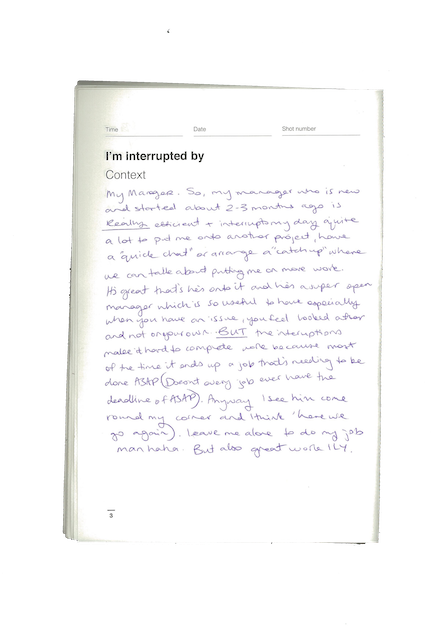 Time
Date
Shot number
I'm interrupted by
Context
My Manager. So, my manager who is new
and started about 2-3 months ago is
Really efficient + interrupts my day quite
a lot to put me onto another project, have
a "quick chat" or arrange a "catch up" where
we can talk about putting me on more work.
It's great that he's onto it and he's a super open
manager which is so useful to have especially
when you have an issue, you feel looked after
and not on your own. BUT the interuptions
make it hard to complete work because most
of the time it ends up a job that's needing to be
done ASAP (Doesnt every job ever have the
deadline of ASAP). Anyway I see him come
round my corner and I think 'here we
go again). Leave me alone to do my job
man haha. But also great work ILY.
8